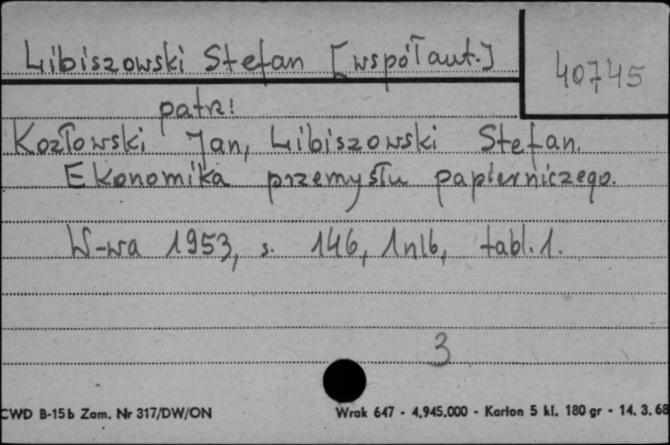 Libiszowski Stefan [współaut.]
40745
patrz!
Kozłowski Jan, Libiszowski Stefan.
Ekonomika przemysłu papierniczego.
W-wa 1953, s. 146, 1nlb, tabl. 1.
3
CWD B-15b Zam. Nr 317/DW/ON
Wrak 647 - 4.945.000 - Karton 5 kl. 180 gr - 14. 3. 68